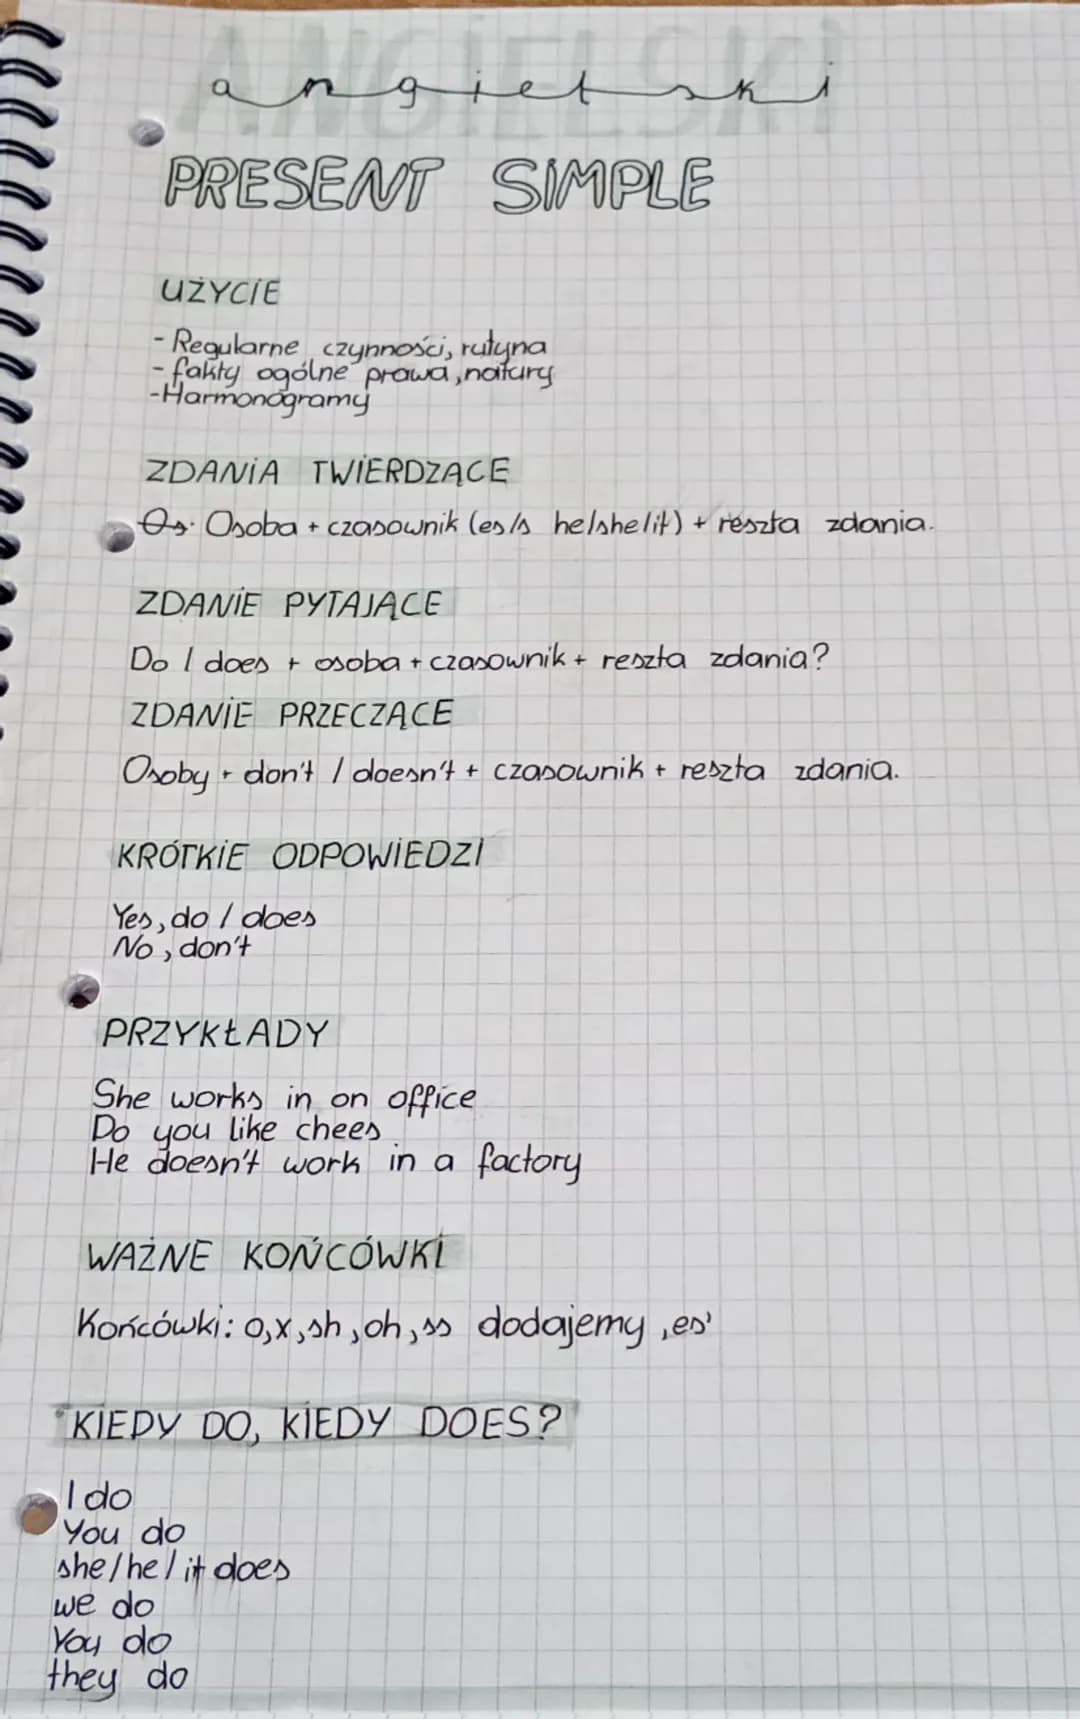 angielski
PRESENT SIMPLE
UŻYCIE
- Regularne czynności, rutyna
- fakty ogólne prawa, natury
- Harmonogramy
ZDANIA TWIERDZĄCE
Os. Osoba + czasownik (es/s he/she/it) + reszta zdania.
ZDANIE PYTAJĄCE
Do / does + osoba + czasownik + reszta zdania?
ZDANIE PRZECZĄCE
Osoby + don't / doesn't + czasownik + reszta zdania.
KRÓTKIE ODPOWIEDZI
Yes, do / does
No, don't
PRZYKŁADY
She works in on office
Do you like chees
He doesn't work in a factory
WAŻNE KOŃCÓWKI
Końcówki: o, x, sh, oh, ss dodajemy ,es'
KIEDY DO, KIEDY DOES?
I do
You do
she/he/it does
we do
You do
they do